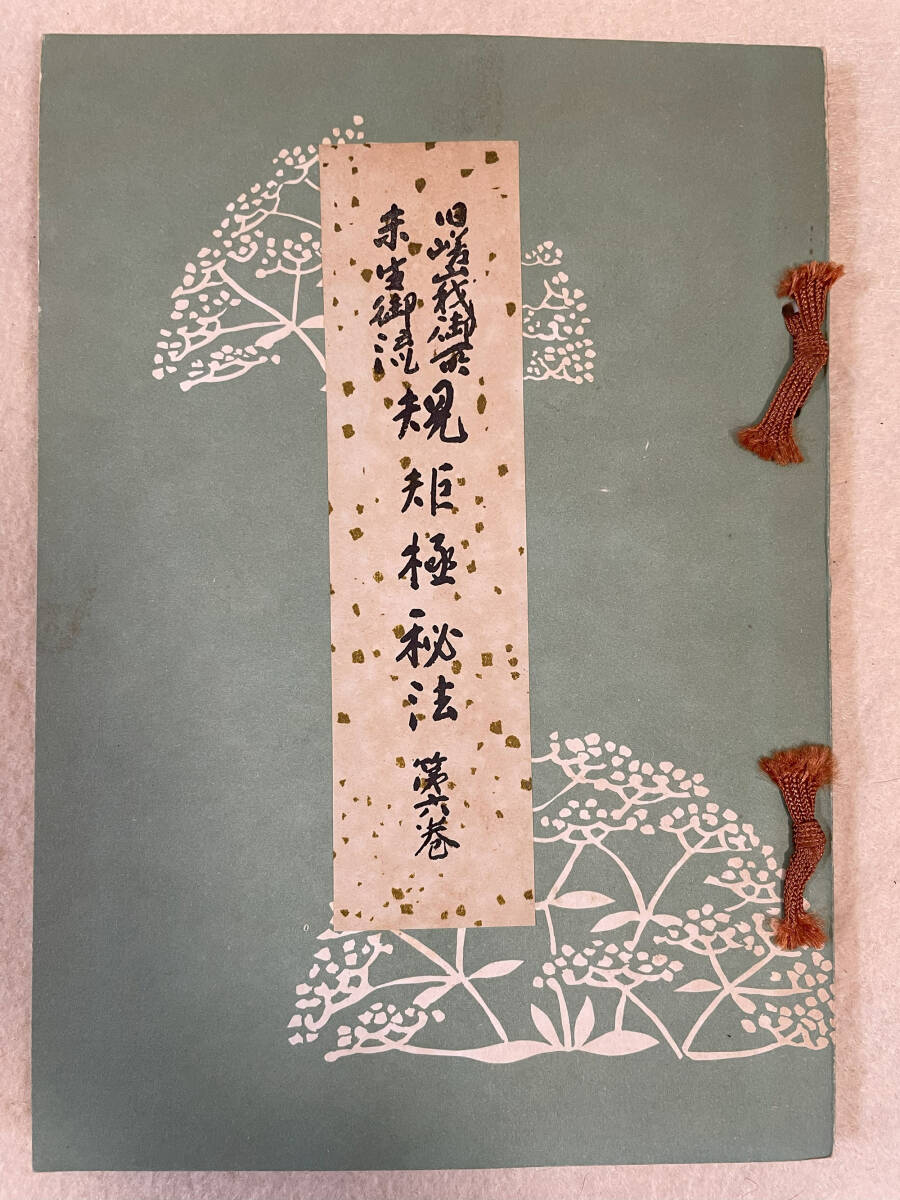 旧嵯峨御所
未生御流
規矩極秘法 第六巻